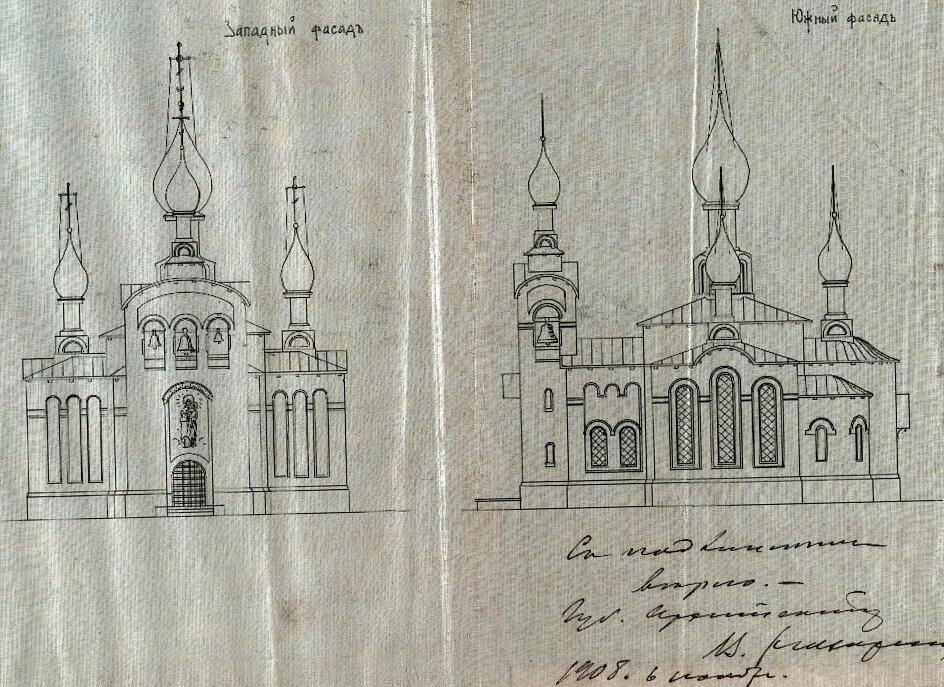 Западный фасадъ
Южный фасадъ
Съ подлиннымъ
вѣрно. —
Губ. Архитекторъ
1908. 6 ноябр.